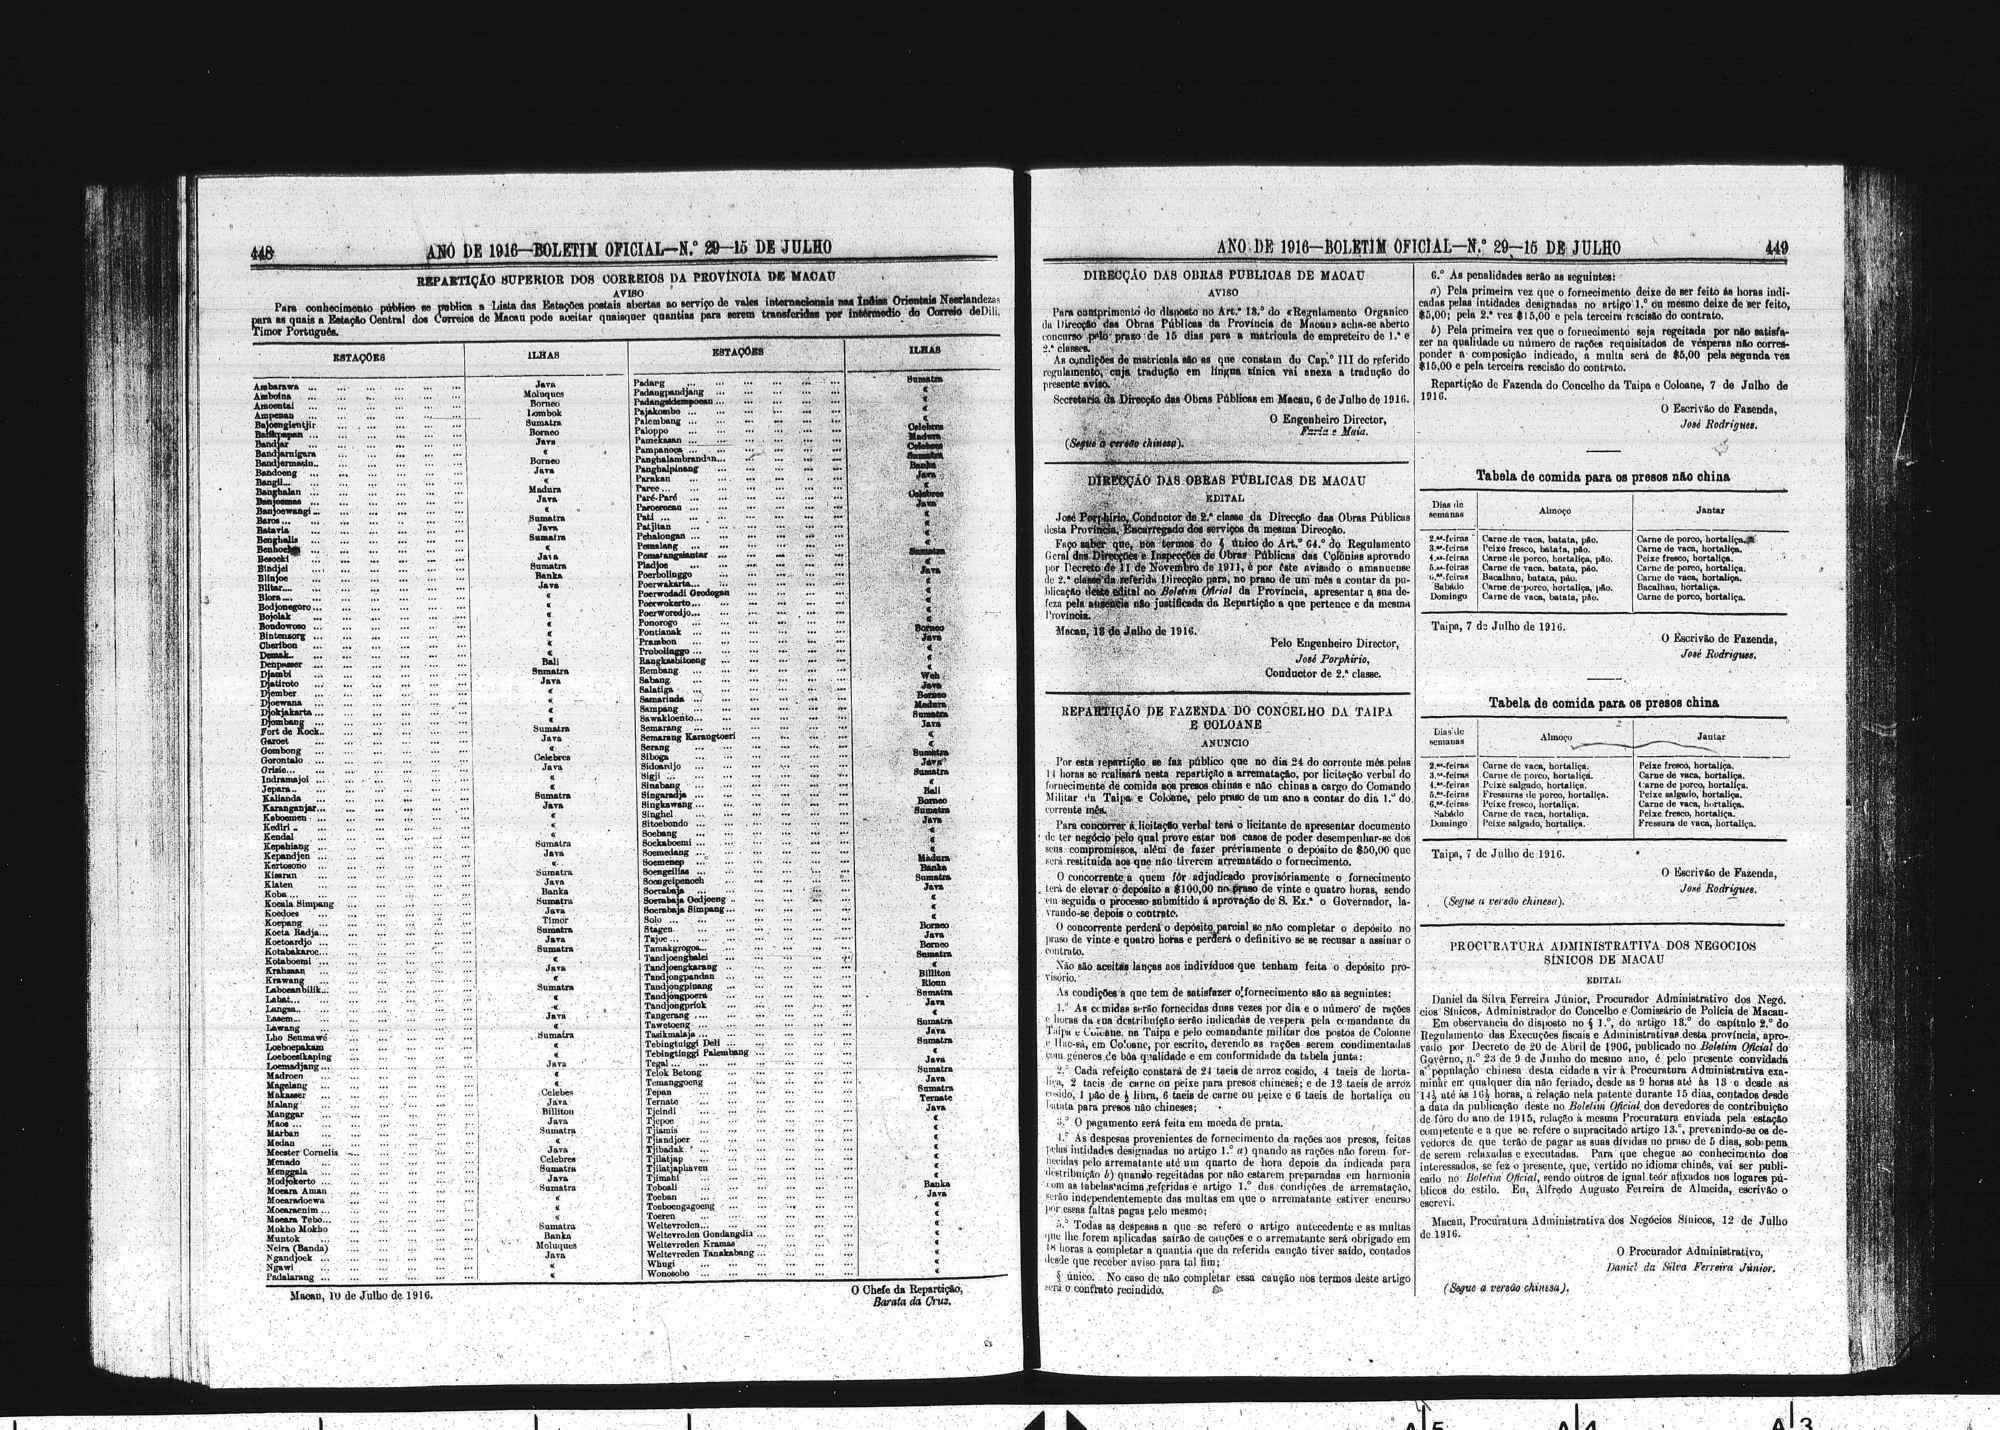 448
ANO DE 1916—BOLETIM OFICIAL—N.º 29—15 DE JULHO
REPARTIÇÃO SUPERIOR DOS CORREIOS DA PROVÍNCIA DE MACAU
AVISO
Para conhecimento público se publica a Lista das Estações postais abertas ao serviço de vales internacionais nas Indias Orientais Neerlandezas
para as quais a Estação Central dos Correios de Macau pode aceitar quaisquer quantias para serem transferidas por intermédio do Correio de Dili,
Timor Português.
ESTAÇÕES ILHAS ESTAÇÕES ILHAS
Ambarawa
Amboina
Amoentai
Ampenan
Bajoengientjir
Balikpapan
Bandjar
Bandjarnigara
Bandjermasin
Bandoeng
Bangil
Bangkalan
Banjoemas
Banjoewangi
Baros
Batavia
Bengkalis
Benkoelen
Besoeki
Bindjei
Blinjoe
Blitar
Blora
Bodjonegoro
Bojolak
Bondowoso
Bintensorg
Cheribon
Demak
Denpasser
Djambi
Djatiroto
Djember
Djoewana
Djokjakarta
Djombang
Fort de Kock
Garoet
Gombong
Gorontalo
Grisie
Indramajoi
Jepara
Kalianda
Karanganjar
Keboemen
Kediri
Kendal
Kepahiang
Kepandjen
Kertosono
Kisaran
Klaten
Koba
Koeala Simpang
Koedoes
Koepang
Koeta Radja
Koetoardjo
Kotabakaroc
Kotaboemi
Krahsaan
Krawang
Laboeanbilik
Lahat
Langsa
Lasem
Lawang
Lho Seumawé
Loeboepakam
Loeboesikaping
Loemadjang
Madroen
Magelang
Makasser
Malang
Manggar
Maos
Marban
Medan
Meester Cornelis
Menado
Menggala
Modjokerto
Moeara Aman
Moearadoewa
Moearaenim
Moeara Tebo
Mokho Mokho
Muntok
Neira (Banda)
Ngandjoek
Ngawi
Padalarang
Java
Moluques
Borneo
Lombok
Sumatra
Borneo
Java
«
Borneo
Java
«
Madura
Java
«
Sumatra
Java
Sumatra
«
Java
Sumatra
Banka
Java
«
«
«
«
«
«
«
Bali
Sumatra
Java
«
«
«
«
Sumatra
Java
«
Celebres
Java
«
«
Sumatra
Java
«
«
«
Sumatra
Java
«
Sumatra
Java
Banka
Sumatra
Java
Timor
Sumatra
Java
Sumatra
«
Java
«
Sumatra
«
«
Java
«
Sumatra
«
«
Java
«
«
Celebes
Java
Billiton
Java
Sumatra
«
Java
Celebres
Sumatra
Java
Sumatra
«
«
«
Sumatra
Banka
Moluques
Java
«
«
Padarg
Padangpandjang
Padangsidempoean
Pajakombo
Palembang
Paloppo
Pamekasan
Pampanoea
Panghalambrandan
Panghalpinang
Parakan
Paree
Paré-Paré
Paroerocan
Pati
Patjitan
Pehalongan
Pemalang
Pematangsiantar
Pladjoe
Poerbolinggo
Poerwakarta
Poerwodadi Grodogan
Poerwokerto
Poerworedjo
Ponorogo
Pontianak
Prambon
Probolinggo
Rangkasbitoeng
Rembang
Sabang
Salatiga
Samarinda
Sampang
Sawakloento
Semarang
Semarang Karangtoeri
Serang
Siboga
Sidoardjo
Sigji
Sinabang
Singaradja
Singkawang
Singhel
Sitoebondo
Soebang
Soekaboemi
Soemedang
Soemenep
Soengeilias
Soengeipenoeh
Soerabaja
Soerabaja Oedjoeng
Soerabaja Simpang
Solo
Stagen
Tajoe
Tamakgrogos
Tandjoengbalei
Tandjoengkarang
Tandjongpandan
Tandjongpinang
Tandjongpoera
Tandjongpriok
Tangerang
Tawetoeng
Tasikmalaja
Tebingtuiggi Deli
Tebingtinggi Palembang
Tegal
Telok Betong
Temanggoeng
Tepan
Ternate
Tjeindi
Tjepoe
Tjiamis
Tjiandjoer
Tjibadak
Tjilatjap
Tjilatjaphaven
Tjimahi
Toboali
Toeban
Toeboengagoeng
Toeren
Weltevreden
Weltevreden Gondangdia
Weltevreden Kramas
Weltevreden Tanakabang
Whugi
Wonosobo
Sumatra
«
«
«
«
Celebres
Madura
Celebres
Sumatra
Banka
Java
«
Celebres
Java
«
«
«
«
Sumatra
«
Java
«
«
«
«
«
Borneo
Java
«
«
«
Weh
Java
Borneo
Madura
Sumatra
Java
«
«
Sumatra
Java
Sumatra
«
Bali
Borneo
Sumatra
Java
«
«
«
Madura
Banka
Sumatra
Java
«
«
«
Borneo
Java
Borneo
Sumatra
«
Billiton
Rioun
Sumatra
Java
«
Sumatra
Java
Sumatra
«
Java
Sumatra
Java
Sumatra
Ternate
Java
«
«
«
«
«
«
«
Banka
Java
«
«
«
«
«
«
«
«
Macau, 10 de Julho de 1916.
O Chefe da Repartição,
Barata da Cruz.
ANO DE 1916—BOLETIM OFICIAL—N.º 29—15 DE JULHO
449
DIRECÇÃO DAS OBRAS PUBLICAS DE MACAU
AVISO
Para cumprimento do disposto no Art.º 18.º do «Regulamento Organico
da Direcção das Obras Públicas da Província de Macau» acha-se aberto
concurso pelo praso de 15 dias para a matricula de empreteiro de 1.ª e
2.ª classes.
As condições de matricula são as que constam do Cap.º III do referido
regulamento, cuja tradução em língua sínica vai anexa a tradução do
presente aviso.
Secretaria da Direcção das Obras Públicas em Macau, 6 de Julho de 1916.
O Engenheiro Director,
Faria e Maia.
(Segue a versão chinesa).
DIRECÇÃO DAS OBRAS PÚBLICAS DE MACAU
EDITAL
José Porphírio, Conductor de 2.ª classe da Direcção das Obras Públicas
desta Província, Encarregado dos serviços da mesma Direcção.
Faço saber que, nos termos do § único do Art.º 64.º do Regulamento
Geral das Direcções e Inspecções de Obras Públicas das Colónias aprovado
por Decreto de 11 de Novembro de 1911, é por êste avisado o amanuense
de 2.ª classe da referida Direcção para, no praso de um mês a contar da pu-
blicação deste edital no Boletim Oficial da Província, apresentar a sua de-
feza pela ausência não justificada da Repartição a que pertence e da mesma
Província.
Macau, 13 de Julho de 1916.
Pelo Engenheiro Director,
José Porphírio,
Conductor de 2.ª classe.
REPARTIÇÃO DE FAZENDA DO CONCELHO DA TAIPA
E COLOANE
ANUNCIO
Por esta repartição se faz público que no dia 24 do corrente mês pelas
14 horas se realisará nesta repartição a arrematação, por licitação verbal do
fornecimento de comida aos presos chinas e não chinas a cargo do Comando
Militar da Taipa e Coloane, pelo praso de um ano a contar do dia 1.º do
corrente mês.
Para concorrer á licitação verbal terá o licitante de apresentar documento
de ter negócio pelo qual prove estar nos casos de poder desempenhar-se dos
seus compromissos, além de fazer préviamente o depósito de $50,00 que
será restituida aos que não tiverem arrematado o fornecimento.
O concorrente a quem fôr adjudicado provisóriamente o fornecimento
terá de elevar o depósito a $100,00 no praso de vinte e quatro horas, sendo
em seguida o processo submitido á aprovação de S. Ex.ª o Governador, la-
vrando-se depois o contrato.
O concorrente perderá o depósito parcial se não completar o depósito no
praso de vinte e quatro horas e perderá o definitivo se se recusar a assinar o
contrato.
Não são aceitas lanças aos indivíduos que tenham feita o depósito pro-
visório.
As condições a que tem de satisfazer o fornecimento são as seguintes:
1.º As comidas serão fornecidas duas vezes por dia e o número de rações
e horas da sua destribuíção serão indicadas de vespera pela comandante da
Taipa e Coloane, na Taipa e pelo comandante militar dos postos de Coloane
e Hac-sá, em Coloane, por escrito, devendo as rações serem condimentadas
com géneros de bôa qualidade e em conformidade da tabela junta:
2.º Cada refeição constará de 24 taeis de arroz cosido, 4 taeis de horta-
liça, 2 taeis de carne ou peixe para presos chineses; e de 12 taeis de arroz
cosido, 1 pão de ½ libra, 6 taeis de carne ou peixe e 6 taeis de hortaliça ou
batata para presos não chineses;
3.º O pagamento será feita em moeda de prata.
4.º As despesas provenientes de fornecimento da rações aos presos, feitas
pelas intidades designadas no artigo 1.º a) quando as rações não forem for-
necidas pelo arrematante até um quarto de hora depois da indicada para
destribuição b) quando regeitadas por não estarem preparadas em harmonia
com as tabelas acima referidas e artigo 1.º das condições de arrematação,
serão independentemente das multas em que o arrematante estiver encurso
por essas faltas pagas pelo mesmo;
5.º Todas as despesas a que se refere o artigo antecedente e as multas
que lhe forem aplicadas sairão de cauções e o arrematante será obrigado em
48 horas a completar a quantia que da referida caução tiver saído, contados
desde que receber aviso para tal fim;
§ único. No caso de não completar essa caução nos termos deste artigo
será o contrato recindido.
6.º As penalidades serão as seguintes:
a) Pela primeira vez que o fornecimento deixe de ser feito ás horas indi-
cadas pelas intidades designadas no artigo 1.º ou mesmo deixe de ser feito,
$5,00; pela 2.ª vez $15,00 e pela terceira rescisão do contrato.
b) Pela primeira vez que o fornecimento seja regeitada por não satisfa-
zer na qualidade ou número de rações requisitados de vésperas não corres-
ponder a composição indicado, a multa será de $5,00 pela segunda vez
$15,00 e pela terceira rescisão do contrato.
Repartição de Fazenda do Concelho da Taipa e Coloane, 7 de Julho de
1916.
O Escrivão de Fazenda,
José Rodrigues.
Tabela de comida para os presos não china
Dias de semanas Almoço Jantar
2.as-feiras Carne de vaca, batata, pão. Carne de porco, hortaliça.
3.as-feiras Peixe fresco, batata, pão. Carne de vaca, hortaliça.
4.as-feiras Carne de porco, hortaliça, pão. Peixe fresco, hortaliça.
5.as-feiras Carne de vaca, batata, pão. Carne de porco, hortaliça.
6.as-feiras Bacalhau, batata, pão. Carne de vaca, hortaliça.
Sabádo Carne de porco, hortaliça, pão. Bacalhau, hortaliça.
Domingo Carne de vaca, batata, pão. Carne de porco, hortaliça.
Taipa, 7 de Julho de 1916.
O Escrivão de Fazenda,
José Rodrigues.
Tabela de comida para os presos china
Dias de semanas Almoço Jantar
2.as-feiras Carne de vaca, hortaliça. Peixe fresco, hortaliça.
3.as-feiras Carne de porco, hortaliça. Carne de vaca, hortaliça.
4.as-feiras Peixe salgado, hortaliça. Carne de porco, hortaliça.
5.as-feiras Fressuras de porco, hortaliça. Peixe salgado, hortaliça.
6.as-feiras Peixe fresco, hortaliça. Carne de vaca, hortaliça.
Sabádo Carne de vaca, hortaliça. Peixe fresco, hortaliça.
Domingo Peixe salgado, hortaliça. Fressura de vaca, hortaliça.
Taipa, 7 de Julho de 1916.
O Escrivão de Fazenda,
José Rodrigues.
(Segue a versão chinesa).
PROCURATURA ADMINISTRATIVA DOS NEGOCIOS
SÍNICOS DE MACAU
EDITAL
Daniel da Silva Ferreira Júnior, Procurador Administrativo dos Negó.
cios Sínicos, Administrador do Concelho e Comissário de Polícia de Macau-
Em observancia do disposto no § 1.º, do artigo 13.º do capítulo 2.º do
Regulamento das Execuções fiscais e Administrativas desta província, apro-
vado por Decreto de 20 de Abril de 1906, publicado no Boletim Oficial do
Govêrno, n.º 23 de 9 de Junho do mesmo ano, é pelo presente convidada
a população chinesa desta cidade a vir à Procuratura Administrativa exa-
minar em qualquer dia não feriado, desde as 9 horas até às 13 e desde as
14½ até às 16½ horas, a relação nela patente durante 15 dias, contados desde
a data da publicação deste no Boletim Oficial dos devedores de contribuição
de fôro do ano de 1915, relação à mesma Procuratura enviada pela estação
competente e a que se refere o supracitado artigo 13.º, prevenindo-se os de-
vedores de que terão de pagar as suas dívidas no praso de 5 dias, sob pena
de serem relaxadas e executadas. Para que chegue ao conhecimento dos
interessados, se fez o presente, que, vertido no idioma chinês, vai ser publi-
cado no Boletim Oficial, sendo outros de igual teôr afixados nos logares pú-
blicos do estilo. Eu, Alfredo Augusto Ferreira de Almeida, escrivão o
escrevi.
Macau, Procuratura Administrativa dos Negócios Sínicos, 12 de Julho
de 1916.
O Procurador Administrativo,
Daniel da Silva Ferreira Júnior.
(Segue a versão chinesa).
A 5 A 4 A 3